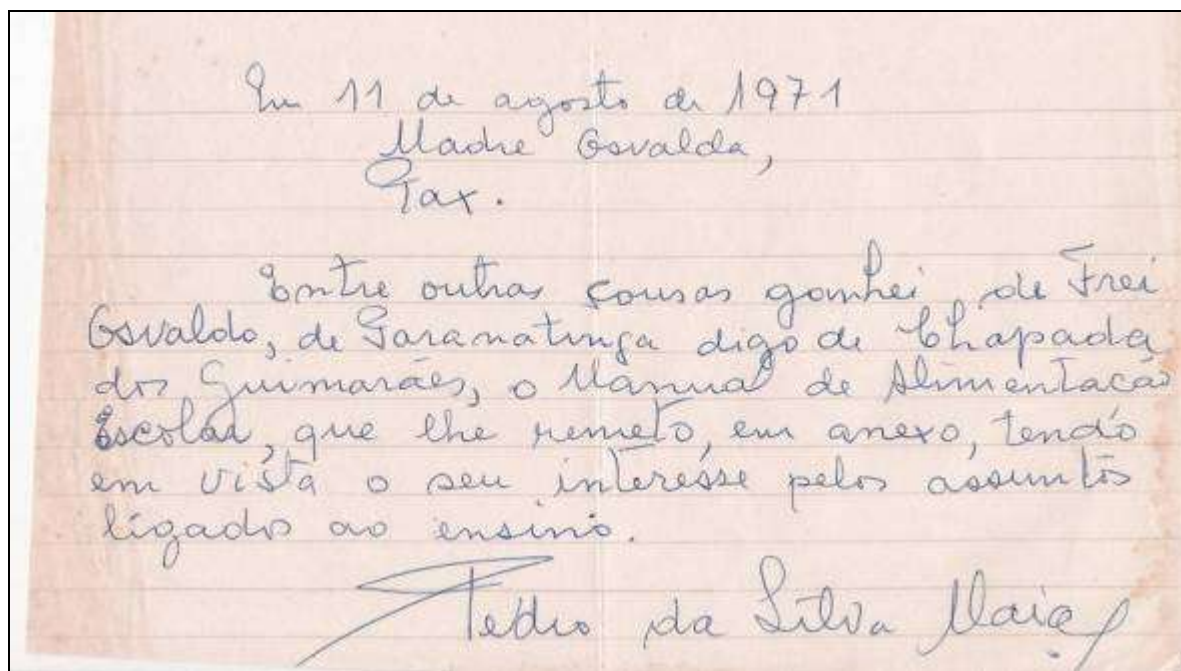 Em 11 de agosto de 1971
Madre Osvalda,
Pax.
Entre outras cousas ganhei, de Frei
Osvaldo, de Paranatinga digo de Chapada
dos Guimarães, o Manual de Alimentação
Escolar, que lhe remeto, em anexo, tendo
em vista o seu interêsse pelos assuntos
ligados ao ensino.
Pedro da Silva Maia